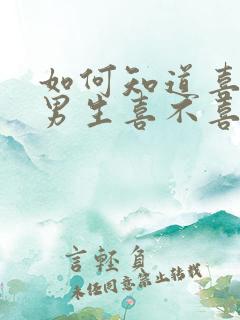 如何知道喜
男生喜不喜
言輕負
未任同意禁止转载